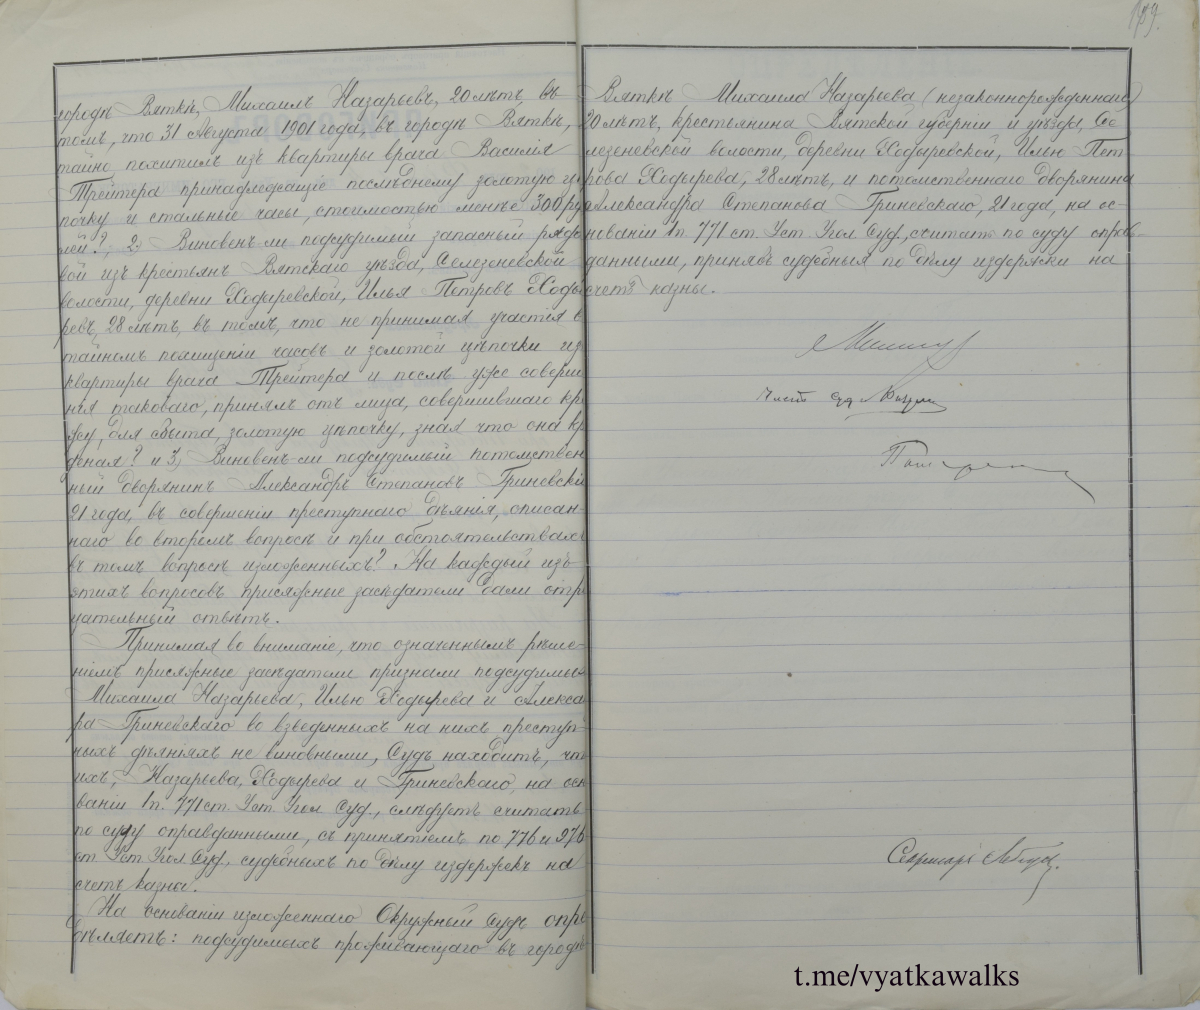 городѣ Вяткѣ, Михаилъ Назарьевъ, 20 лѣтъ, въ
томъ, что 31 Августа 1901 года, въ городѣ Вяткѣ,
тайно похитилъ изъ квартиры врача Василія
Трейтера принадлежащіе послѣднему золотую цѣ
почку и стальные часы, стоимостью менѣе 300 руб
лей?, 2) Виновенъ ли подсудимый запасный рядо
вой изъ крестьянъ Вятскаго уѣзда, Селезеневской
волости, деревни Ходыревской, Илья Петровъ Ходы
ревъ, 28 лѣтъ, въ томъ, что не принимая участія в
тайномъ похищеніи часовъ и золотой цѣпочки из
квартиры врача Трейтера и послѣ уже соверше
нія таковаго, принялъ отъ лица, совершившаго кра
жу, для сбыта, золотую цѣпочку, зная что она кра
деная? и 3) Виновенъ ли подсудимый потомствен
ный дворянинъ Александръ Степановъ Гриневскій
21 года, въ совершеніи преступнаго дѣянія, описан-
наго во второмъ вопросѣ и при обстоятельствахъ
въ томъ вопросѣ изложенныхъ? На каждый изъ
этихъ вопросовъ присяжные засѣдатели дали отри
цательный отвѣтъ.
Принимая во вниманіе, что означеннымъ рѣше-
ніемъ присяжные засѣдатели признали подсудимых
Михаила Назарьева, Илью Ходырева и Алексан
ра Гриневскаго во взведенныхъ на нихъ преступ-
ныхъ дѣяніяхъ не виновными, Судъ находитъ, что
ихъ, Назарьева, Ходырева и Гриневскаго, на осн
ваніи 1 п. 771 ст. Уст. Угол. Суд., слѣдуетъ считать
по суду оправданными, съ принятіемъ по 776 и 976
ст. Уст. Угол. Суд., судебныхъ по дѣлу издержекъ на
счетъ казны.
На основаніи изложеннаго Окружный Судъ опре
дѣляетъ: подсудимыхъ проживающаго въ городѣ
Вяткѣ Михаила Назарьева, (незаконнорожденнаго)
20 лѣтъ, крестьянина Вятской губерніи и уѣзда, Се
лезеневской волости, деревни Ходыревской, Илью Пет
рова Ходырева, 28 лѣтъ, и потомственнаго дворянина
Александра Степанова Гриневскаго, 21 года, на ос-
нованіи 1 п. 771 ст. Уст. Угол. Суд., считать по суду оправ-
данными, принявъ судебныя по дѣлу издержки на
счетъ казны.
Секретарь
t.me/vyatkawalks